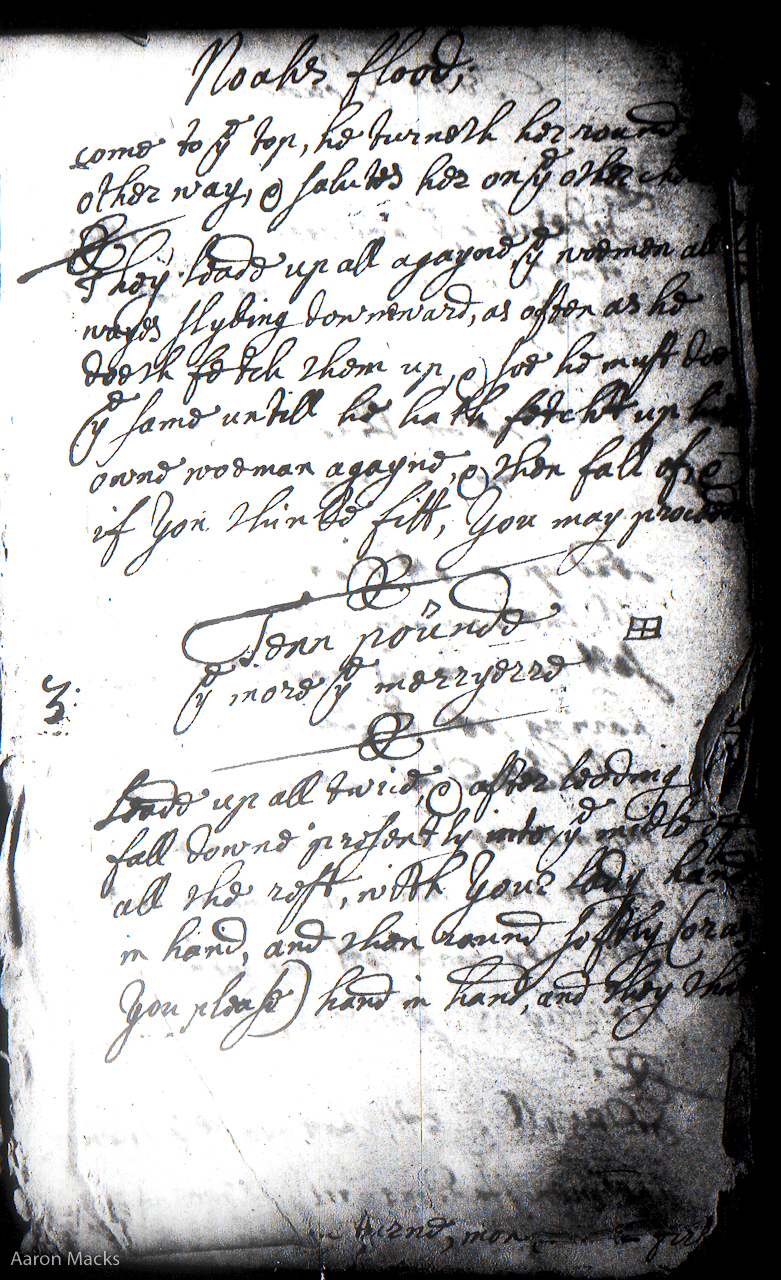 Noahes flood,
come to ye top, he turneth her round
other way, & salutes her on ye other
They leade up all agayne ye woemen all
wayes slyding downeward, as often as he
doeth fetch them up, & soe he must doe
ye same untill he hath fetcht up his
owne woeman agayne, & then fall of, &
if you thinke fitt, you may proceed
Tenn pounde
ye more ye merryerre
3:
Leade up all twice, & after leading
fall downe presently into ye midle of
all the rest, with your lady hand
in hand, and then round softly (or as
you please) hand in hand, and they that
Aaron Macks